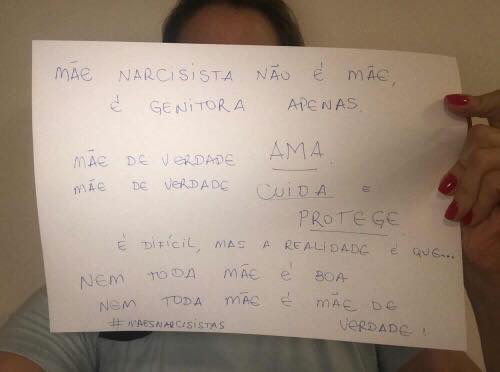 MÃE NARCISISTA NÃO É MÃE,
É GENITORA APENAS.
MÃE DE VERDADE AMA.
MÃE DE VERDADE CUIDA E
PROTEGE
É DIFÍCIL, MAS A REALIDADE É QUE...
NEM TODA MÃE É BOA
NEM TODA MÃE É MÃE DE
#MAESNARCISISTAS VERDADE!